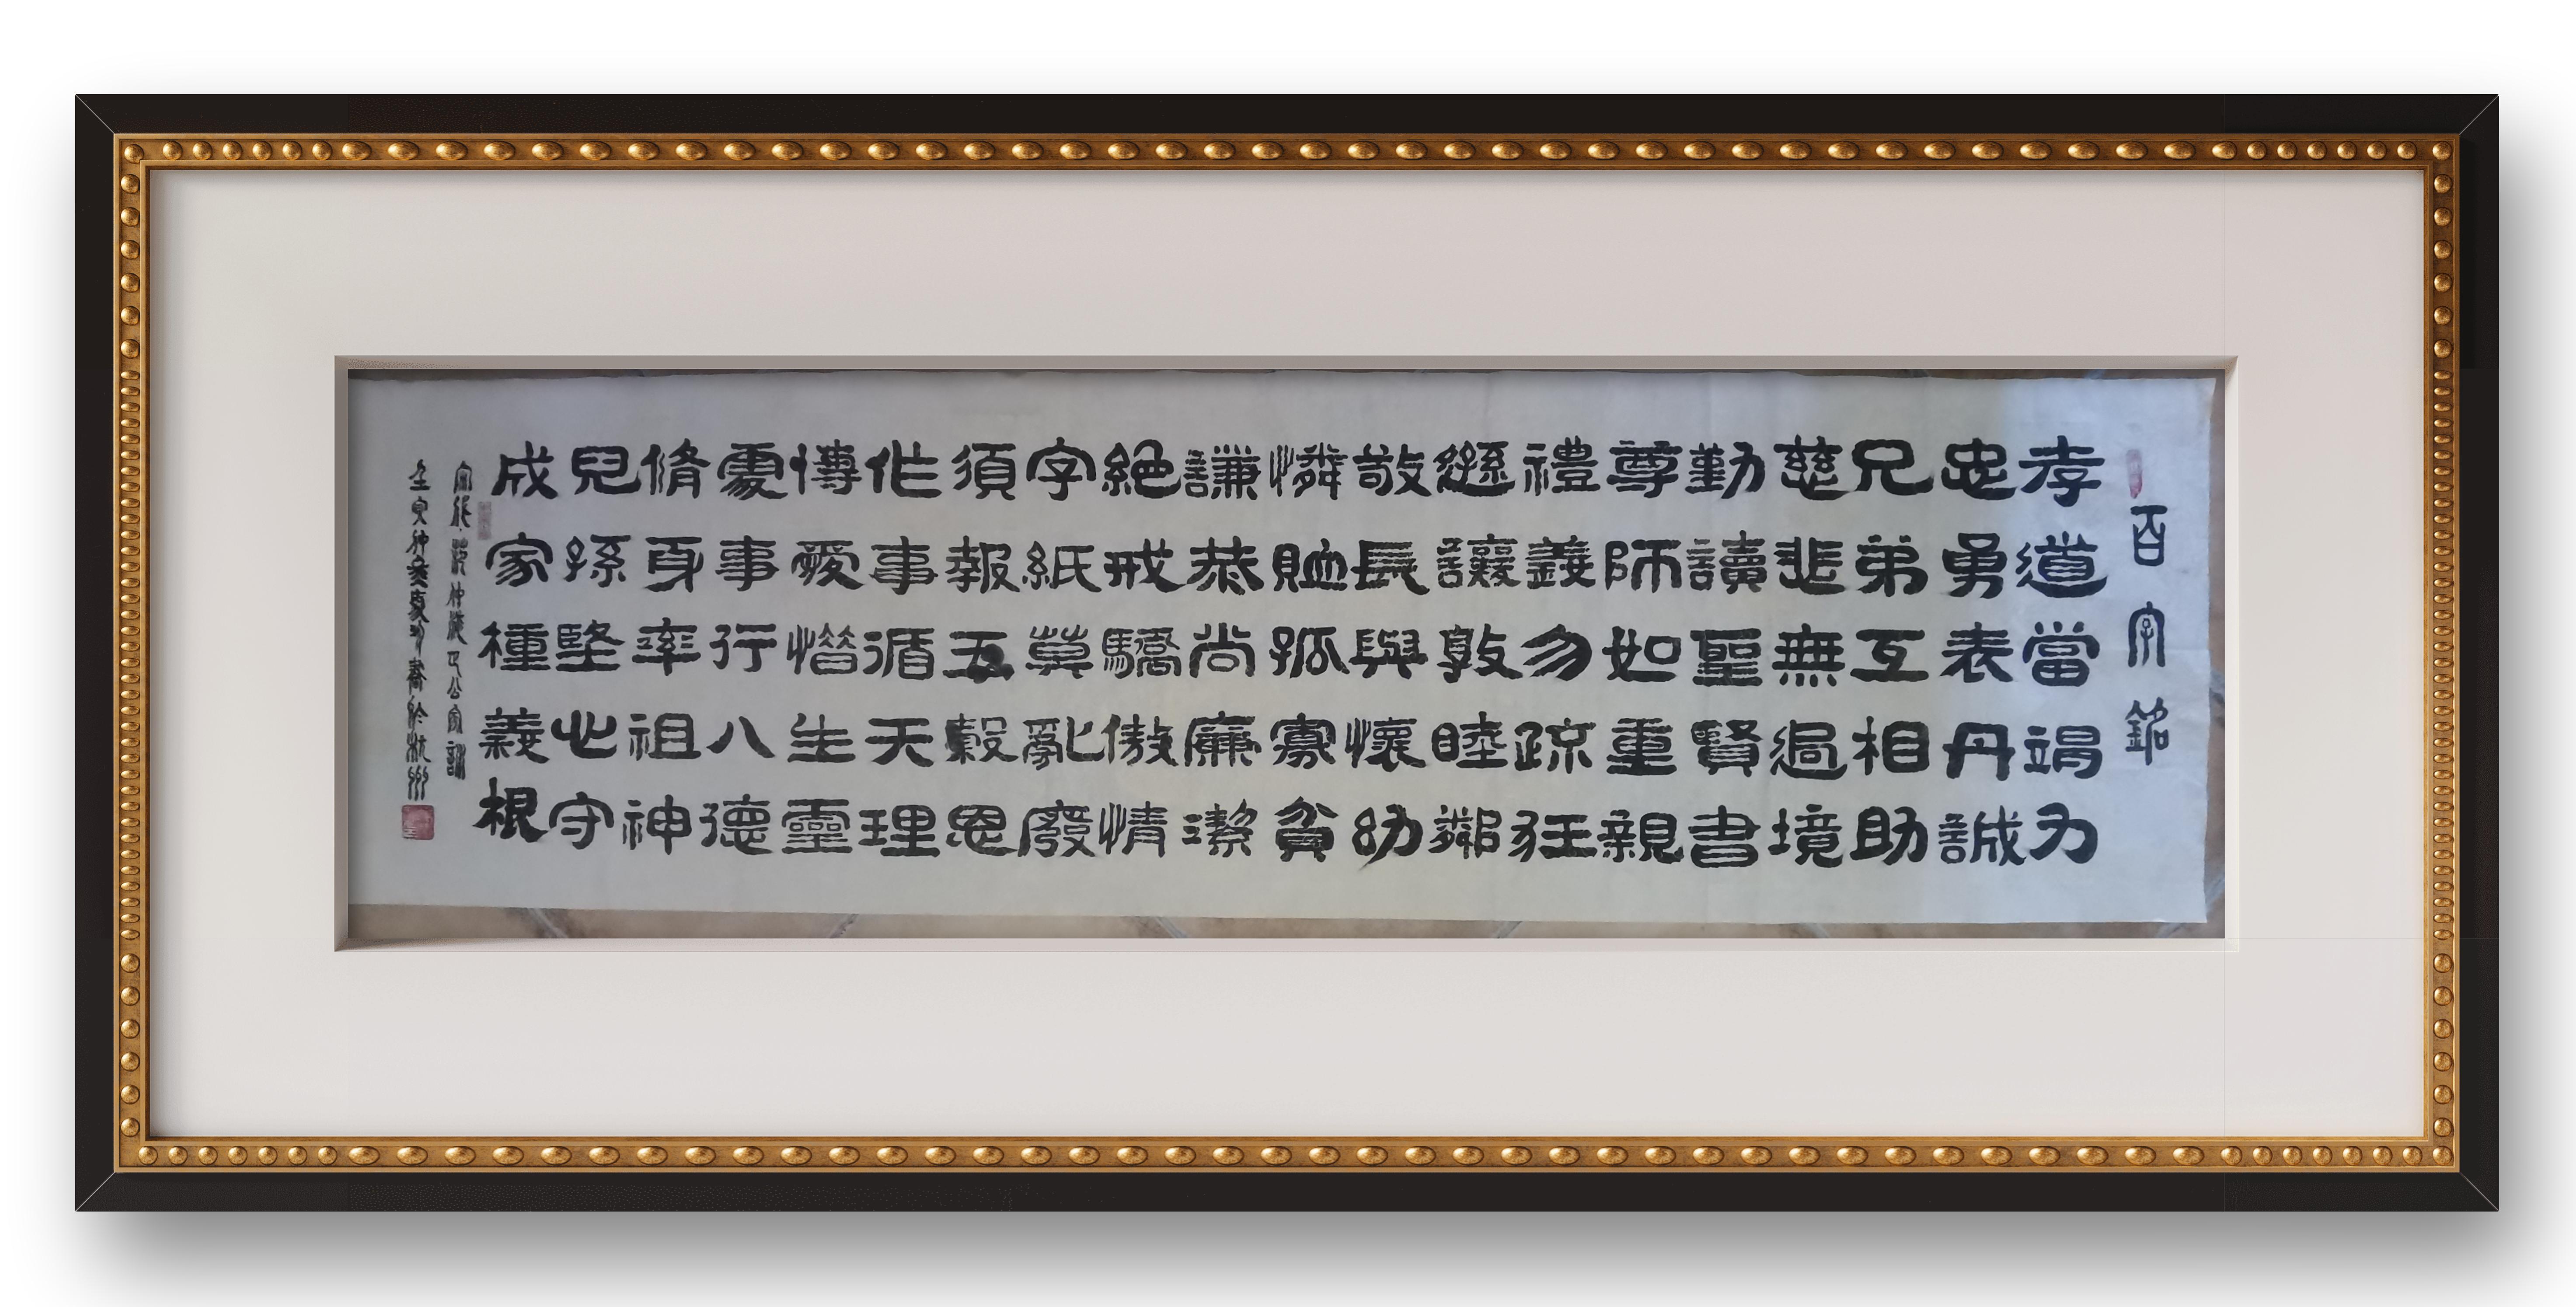 百字銘
孝道當竭力
忠勇表丹誠
兄弟互相助
慈悲無過境
勤讀聖賢書
尊師如重親
禮義勿疏狂
遜讓敦睦鄰
敬長與懷幼
憐恤孤寡貧
謙恭尚廉潔
絕戒驕傲情
字紙莫亂廢
須報五穀恩
作事循天理
博愛惜生靈
處事行八德
修身率祖神
兒孫堅心守
成家種義根
宋范仲淹文正公家訓
壬寅仲冬夏珍書於杭州